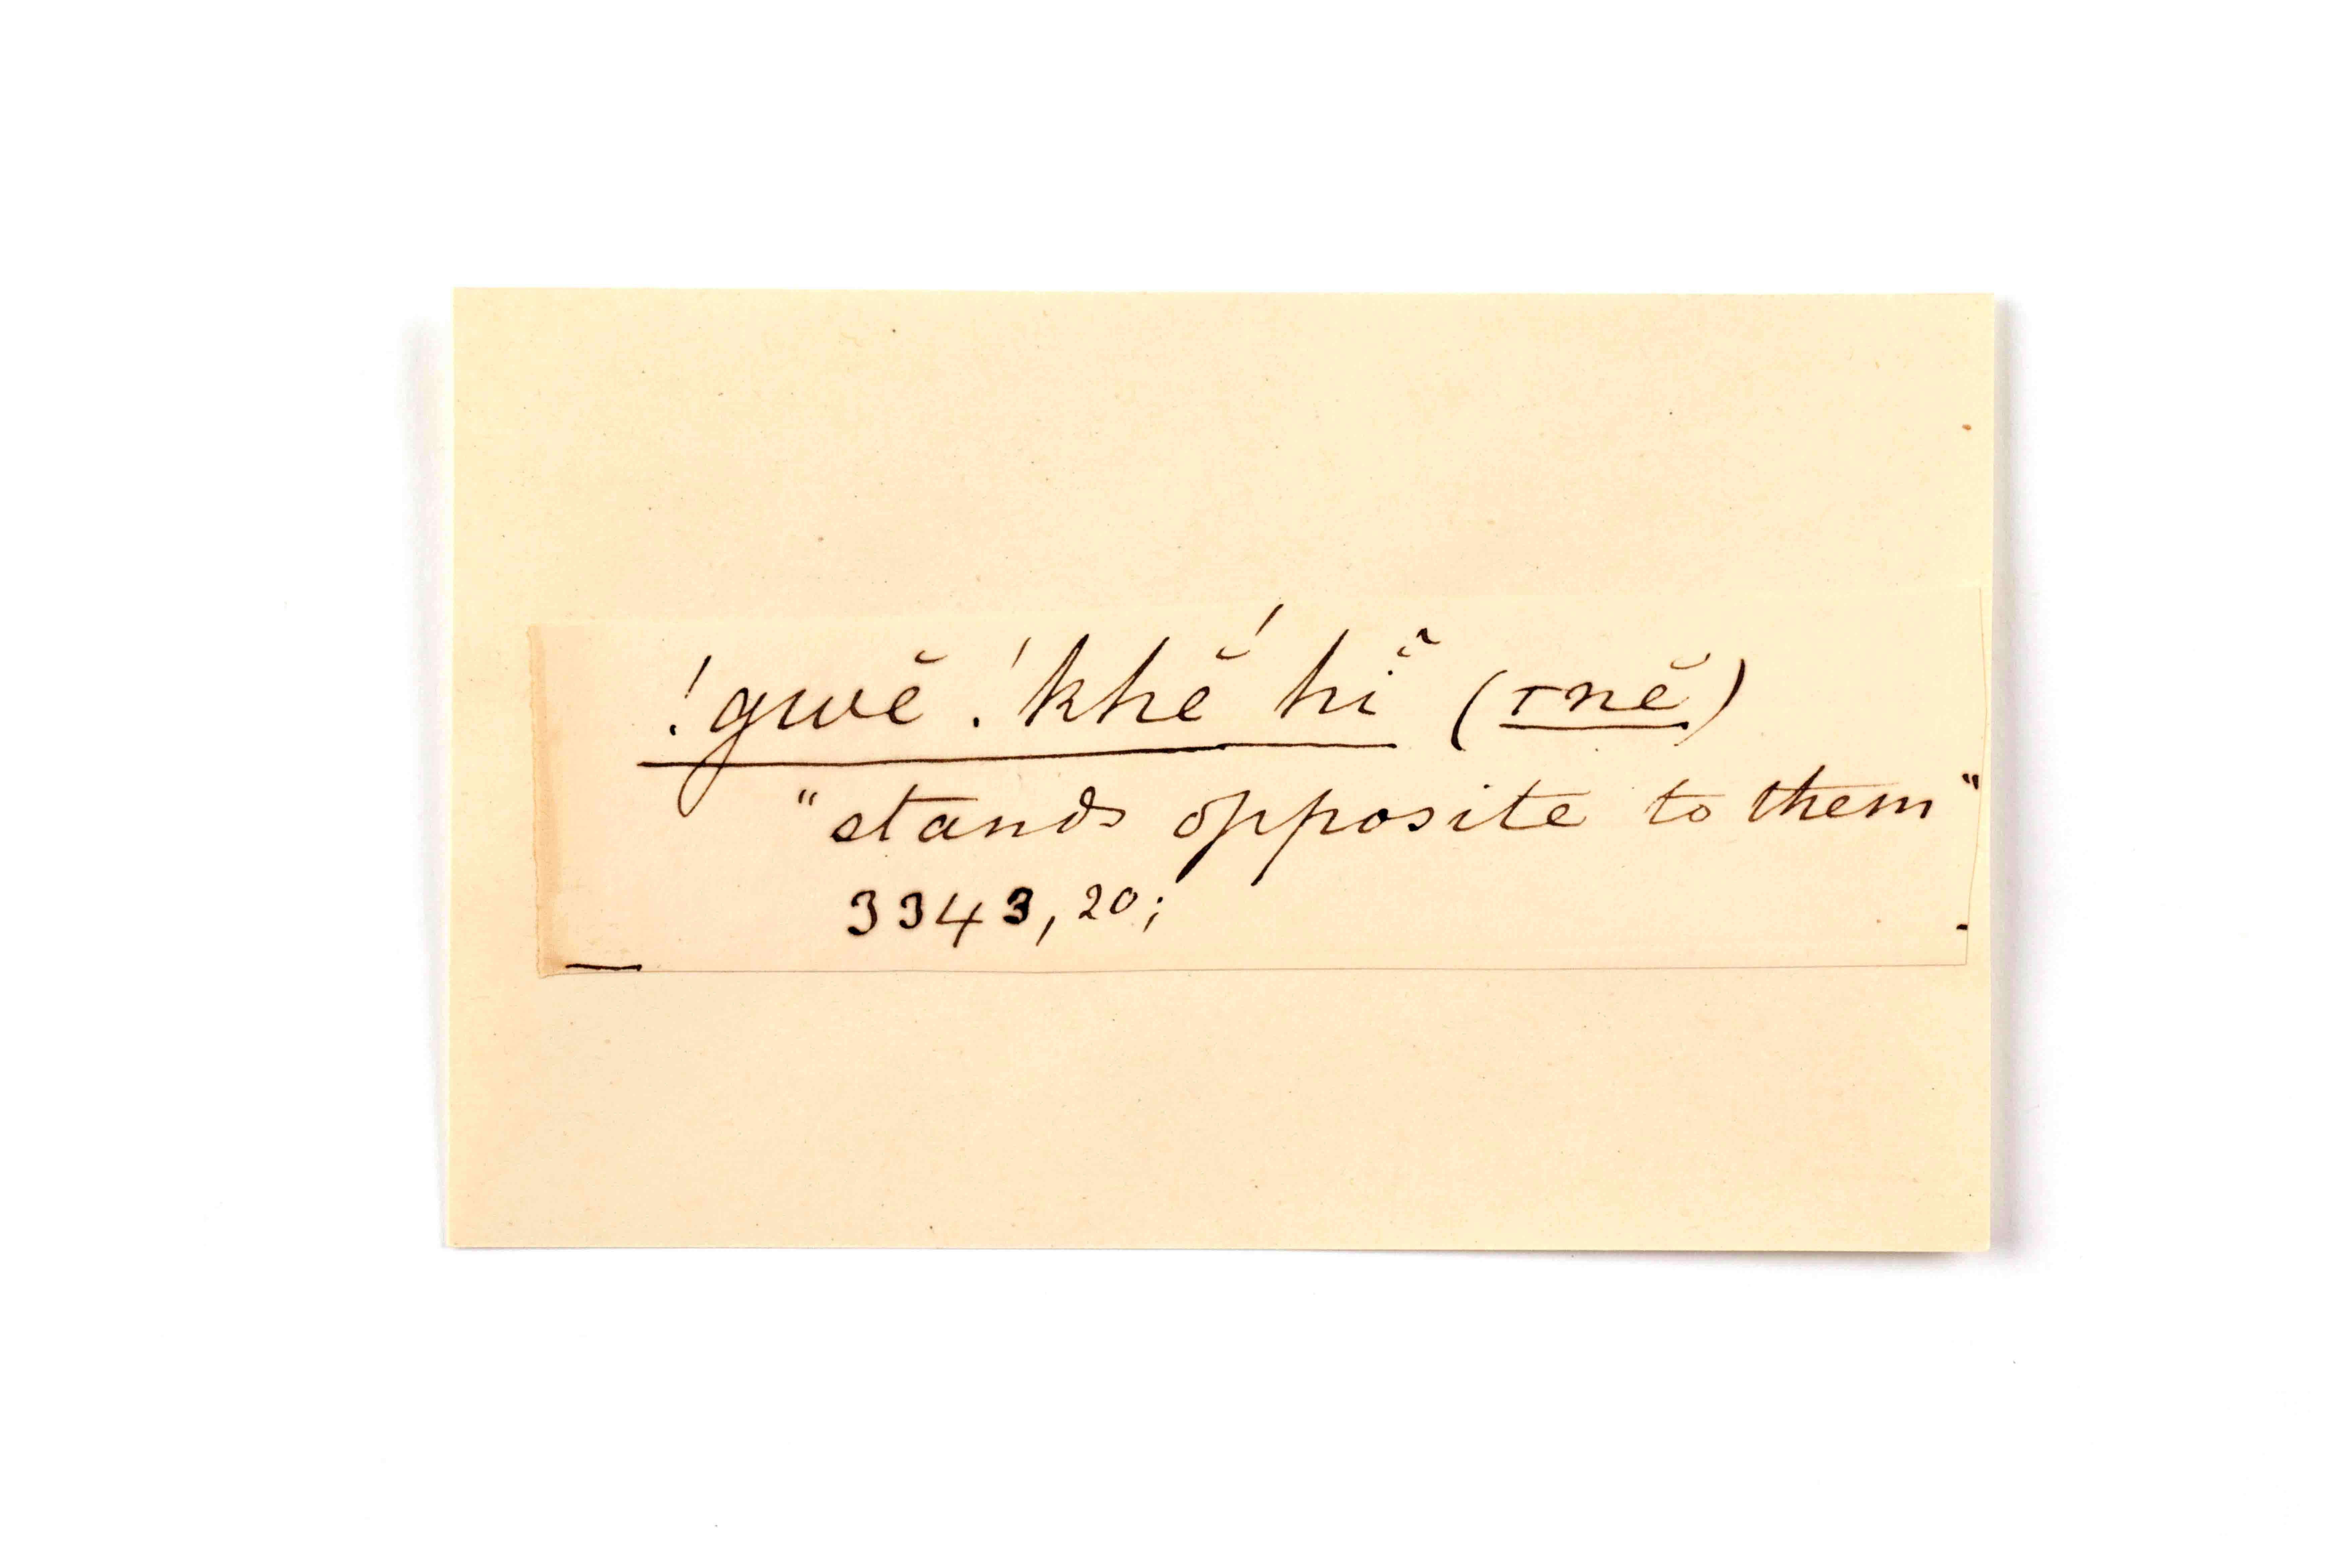 !gwĕ !khĕ́ hĭ̃ (ɾnĕ)
"stands opposite to them"
3343, 20;